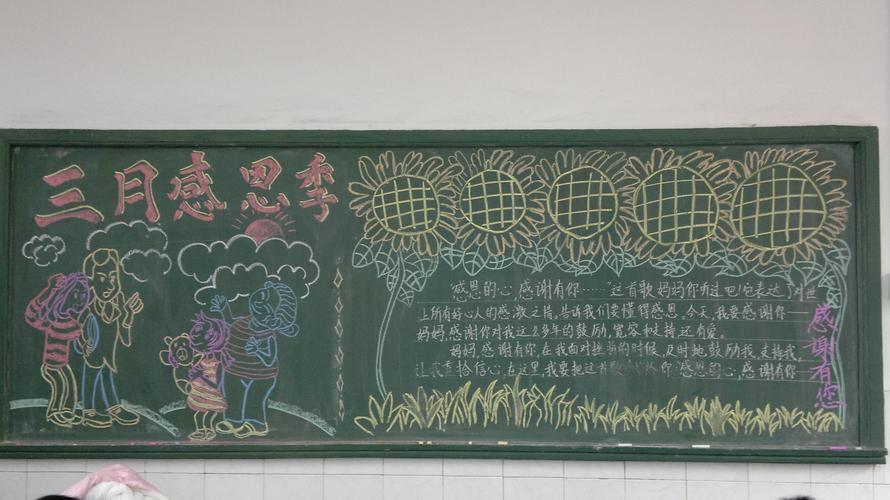 三月感恩季
“感恩的心,感谢有你……”这首歌妈妈你听过吧!它表达了对世
上所有好心人的感激之情,告诉我们要懂得感恩。今天,我要感谢你——
妈妈,感谢你对我这么多年的鼓励,宽容和支持还有爱。
妈妈,感谢有你,在我面对挫折的时候,及时地鼓励我,支持我,
让我重拾信心,在这里,我要把这首歌 你“感恩的心,感谢有你
感谢有您